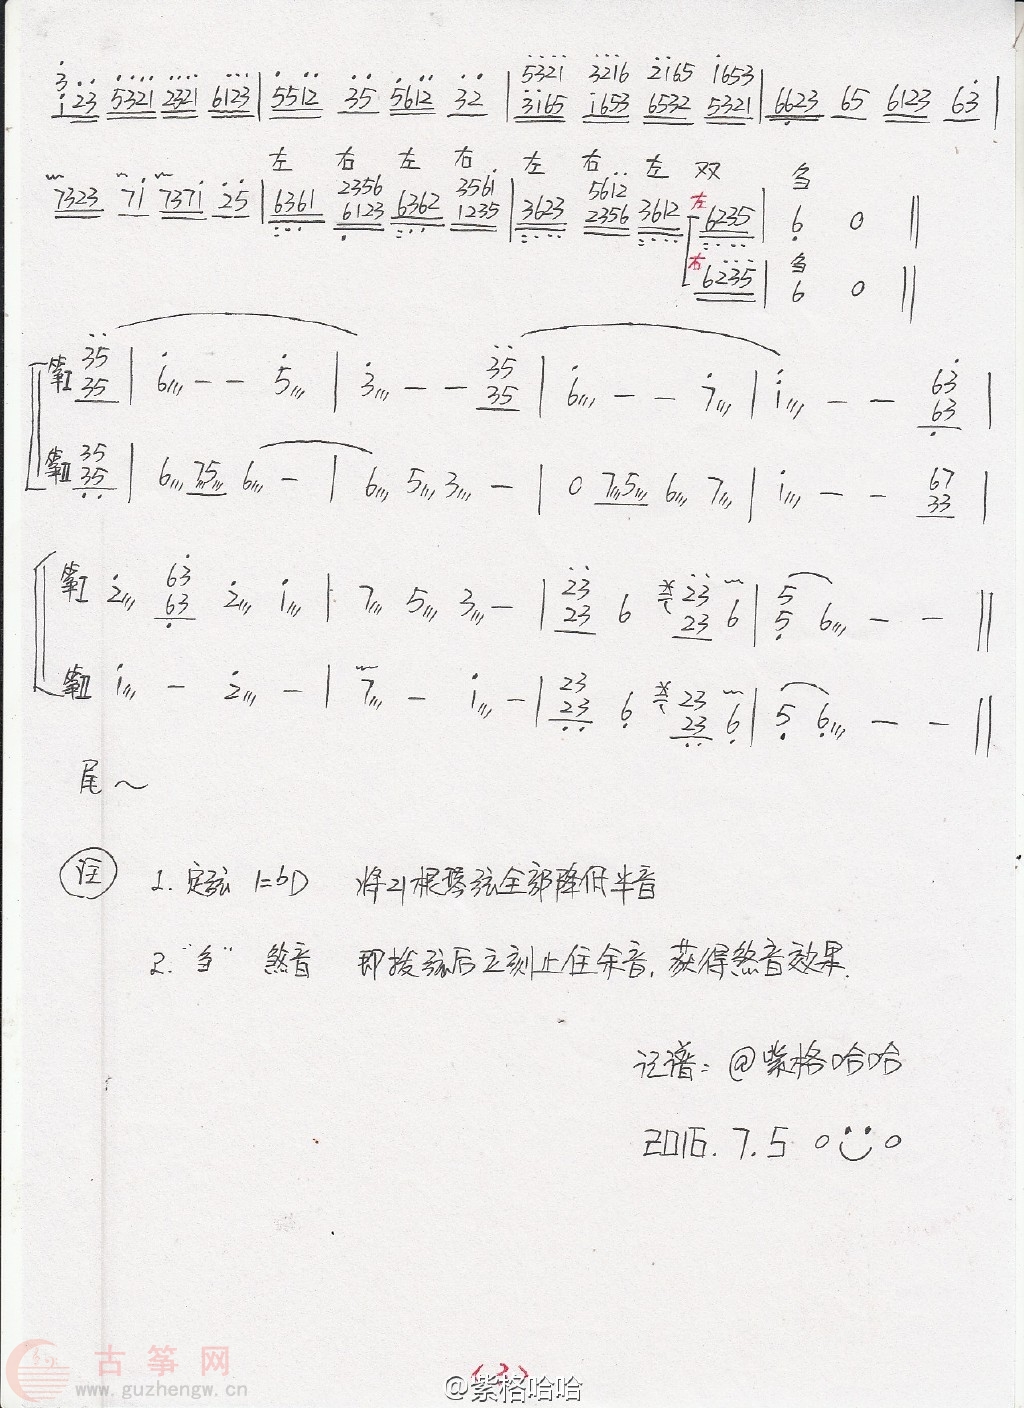 3
i23 5321 2321 6123 | 5512 35 5612 32 | 5321 3216 2165 1653
3165 1653 6532 5321 | 6623 65 6123 63 |
左 右 左 右 左 右 左 双 刍
7323 71 7371 25 | 6361 2356 6362 3561 | 3623 5612 3612 左 6235 | 6 0 ‖
6123 1235 2356
右 6235 | 刍 6 0 ‖
筝I 35 | 6 – – 5 | 3 – – 35 | 6 – – 7 | i – – 63 |
35 35 63
筝II 35 | 6 75 6 – | 6 5 3 – | 0 75 6 7 | i – – 67 |
35 33
筝I 2 63 2 i | 7 5 3 – | 23 6 23 6 | 5 6 – – ‖
63 23 23 5
筝II i – 2 – | 7 – i – | 23 6 23 6 | 5 6 – – ‖
23 23
尾～
注 1. 定弦 1=bD 将21根琴弦全部降低半音
2. "刍" 煞音 即拨弦后立刻止住余音, 获得煞音效果.
记谱: @紫格哈哈
2016.7.5
古筝网
www.guzhengw.cn
(2)
@紫格哈哈